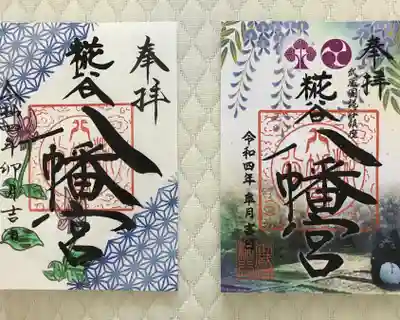 奉拝
糀谷
八幡宮
令和四年卯月吉日
奉拝
糀谷
八幡宮
令和四年皐月吉日